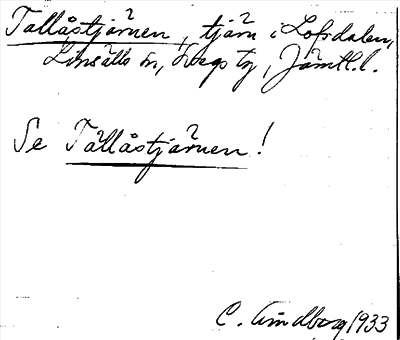 Tallåstjärnen, tjärn i Lofsdalen,
Linsälls sn, Hegs tg, Jämtl. l.
Se Tällåstjärnen!
C. Lindberg 1933